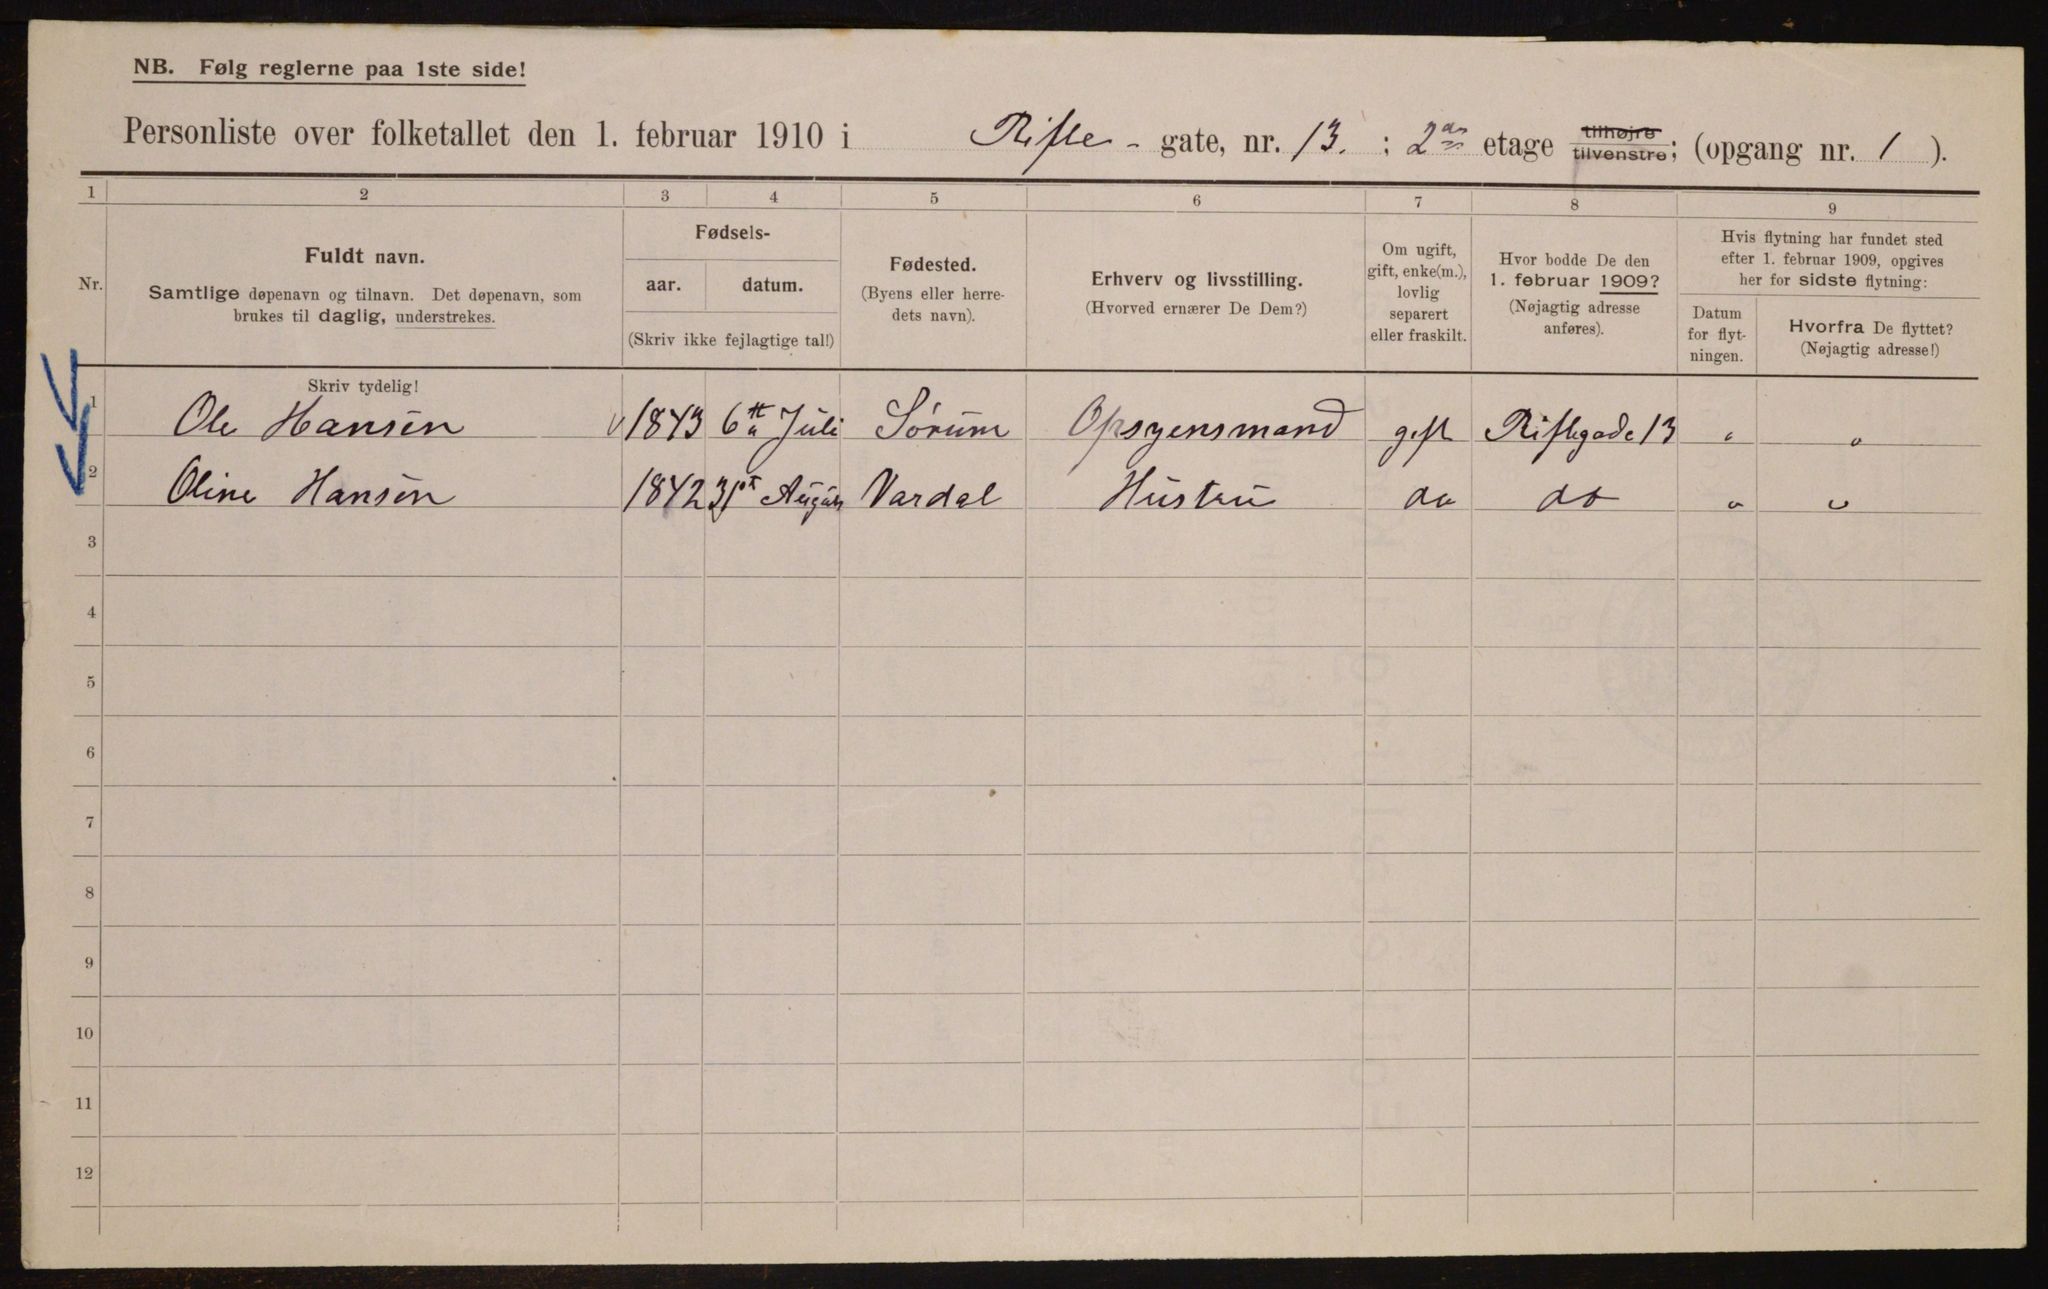 NB. Følg reglerne paa 1ste side!
Personliste over folketallet den 1. februar 1910 i Rifle - gate, nr. 13. : 2den etage tilhøjre tilvenstre; (opgang nr. 1 ).
1 2 3 4 5 6 7 8 9
Nr.
Fuldt navn.
Samtlige døpenavn og tilnavn. Det døpenavn, som
brukes til daglig, understrekes.
Fødsels-
aar. datum.
(Skriv ikke fejlagtige tal!)
Fødested.
(Byens eller herre-
dets navn).
Erhverv og livsstilling.
(Hvorved ernærer De Dem?)
Om ugift,
gift, enke(m.),
lovlig
separert
eller fraskilt.
Hvor bodde De den
1. februar 1909?
(Nøjagtig adresse
anføres).
Hvis flytning har fundet sted
efter 1. februar 1909, opgives
her for sidste flytning:
Datum
for flyt-
ningen.
Hvorfra De flyttet?
(Nøjagtig adresse!)
Skriv tydelig!
1 Ole Hansen 1843 6te Juli Sørum Opsyensmand gift Riflegade 13 " "
2 Oline Hansen 1842 31st August Vardal Hustru do do " "
3
4
5
6
7
8
9
10
11
12